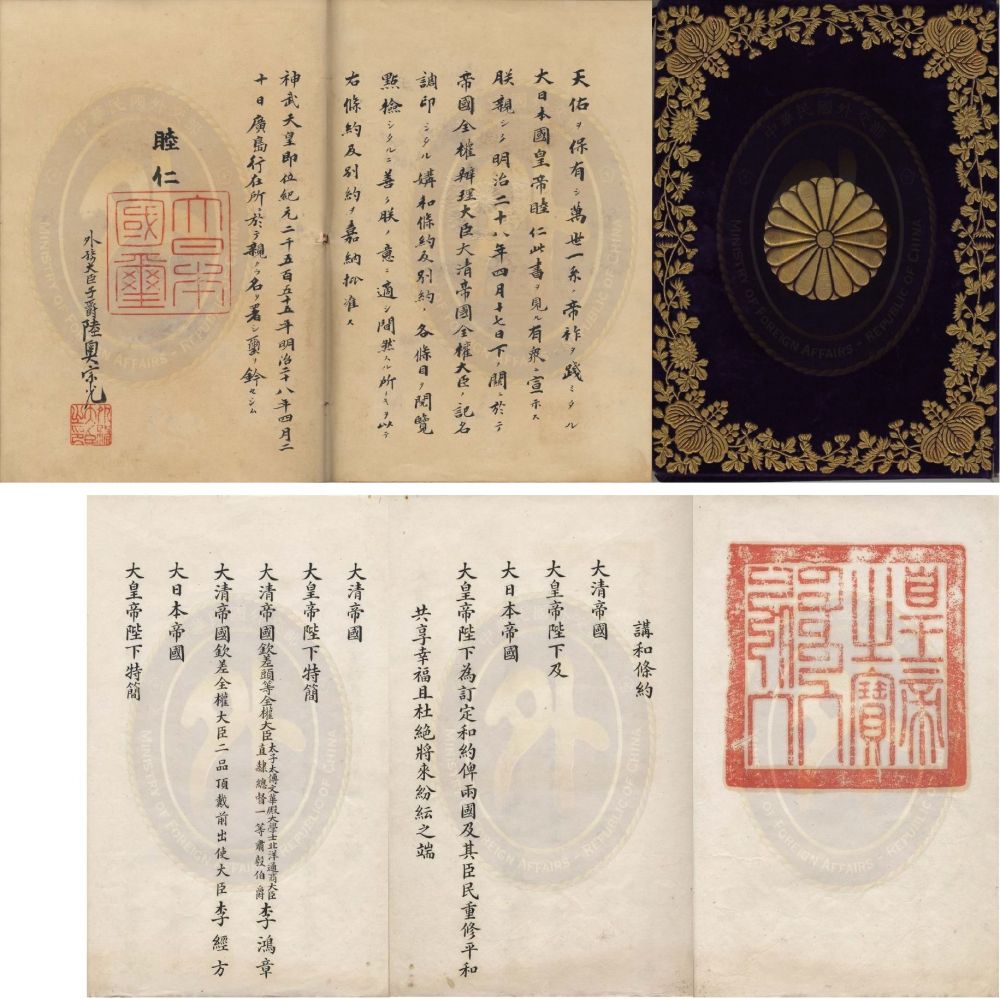 天佑ヲ保有シ萬世一系ノ帝祚ヲ踐ミタル
大日本國皇帝睦仁此書ヲ見ル有衆ニ宣示ス
朕親シク明治二十八年四月十七日下ノ關ニ於テ
帝國全權辨理大臣大清帝國全權大臣ノ記名
調印シタル媾和條約及別約ノ各條目ヲ閲覽
點檢シタルニ善ク朕ノ意ニ適シ間然スル所ナキヲ以テ
右條約及別約ヲ嘉納批准ス
神武天皇即位紀元二千五百五十五年明治二十八年四月二
十日廣島行在所ニ於テ親ラ名ヲ署シ璽ヲ鈐セシム
睦仁
大日本
國璽
外務大臣子爵陸奥宗光
皇帝
之寶
講和條約
大清帝國
大皇帝陛下及
大日本帝國
大皇帝陛下為訂定和約俾兩國及其臣民重修平和
共享幸福且杜絶將來紛紜之端
大清帝國
大皇帝陛下特簡
大清帝國欽差頭等全權大臣太子太傅文華殿大學士北洋通商大臣直隸總督一等肅毅伯爵李鴻章
大清帝國欽差全權大臣二品頂戴前出使大臣李經方
大日本帝國
大皇帝陛下特簡
中華民國外交部
MINISTRY OF FOREIGN AFFAIRS - REPUBLIC OF CHINA